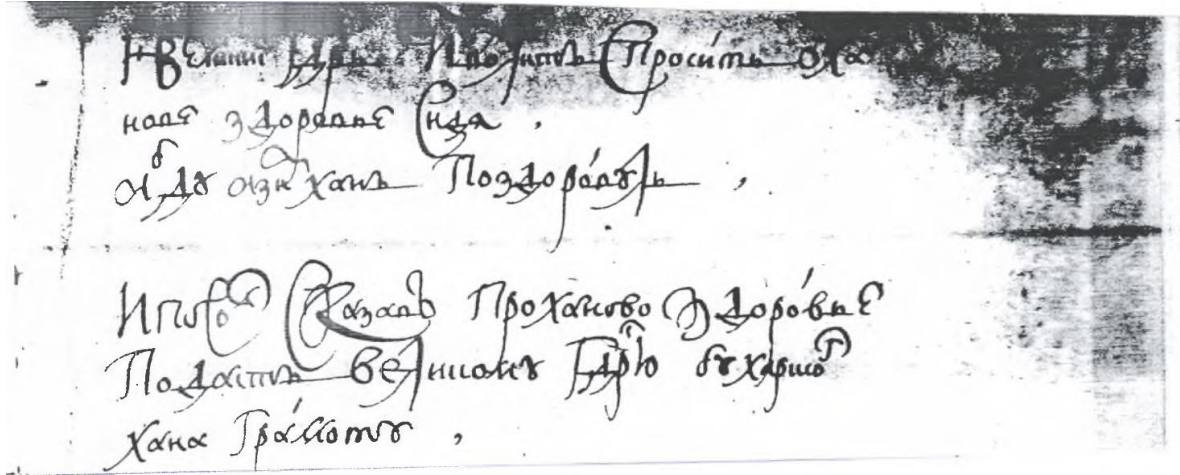 И великии гдрь изволитъ спроси́ть о ха
нове здоровье сидя ,
абду азиз ханъ поздоро́ву ль ,
И посол сказавъ про ханово здоро́вье
подастъ вели́кому гдрю бухарског
хана гра́моту ,